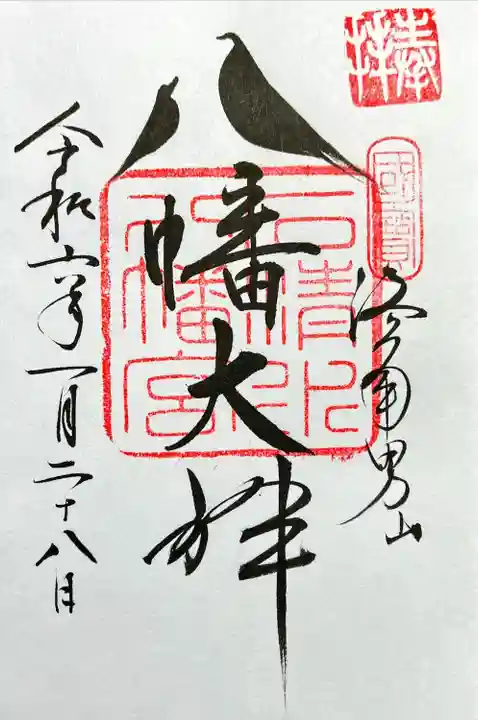 奉拝
國寶
洛南男山
八幡大神
石清水
八幡宮
令和六年一月二十八日